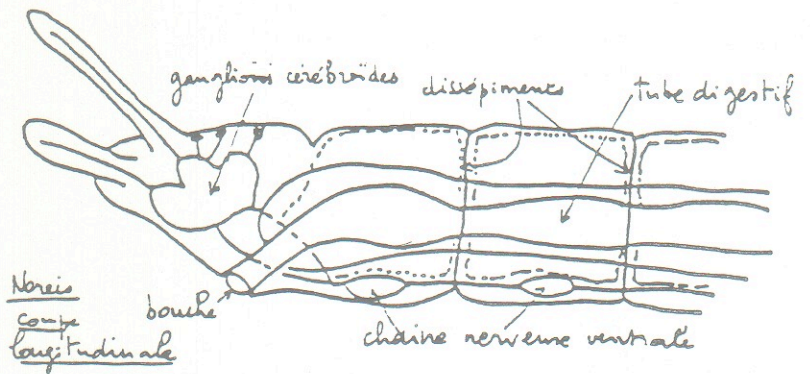 ganglions cérébroïdes
dissépiments
tube digestif
Nereis
coupe
longitudinale
bouche
chaîne nerveuse ventrale